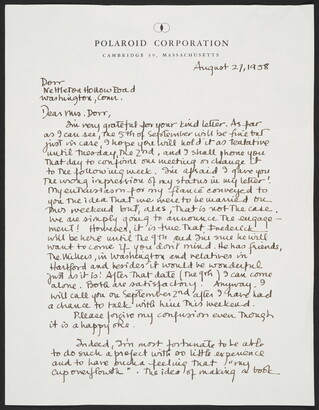 POLAROID CORPORATION
CAMBRIDGE 39, MASSACHUSETTS
August 27, 1958
Dorr
Nettleton Hollow Road
Washington, Conn.
Dear Mrs. Dorr,
I'm very grateful for your kind letter. As far
as I can see, the 5th of September will be fine but
just in case, I hope you will hold it as tentative
until Tuesday, the 2nd, and I shall phone you
that day to confirm our meeting or change it
to the following week. I'm afraid I gave you
the wrong impression of my status in my letter!
My enthusiasm for my fiance conveyed to
you the idea that we were to be married
this weekend but, alas, that is not the case.
We are simply going to announce the engage-
ment! However, it is true that Frederick
will be here until the 9th and I'm sure he will
want to come if you don't mind. He has friends,
the in Washington and relatives in
Hartford and besides it would be wonderful
just as it is! After that date (the 9th) I can come
alone. Both are satisfactory! Anyway, I
will call you on September 2nd after I have had
a chance to talk with him this weekend.
Please forgive my confusion even though
it is a happy one.
Indeed, I'm most fortunate to be able
to do such a project with so little experience
and to have such a feeling that "my
cup overfloweth". The idea of making a book